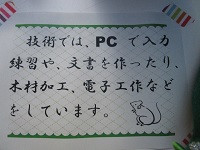 技術では、PCで入力
練習や、文書を作ったり、
木材加工、電子工作など
をしています。